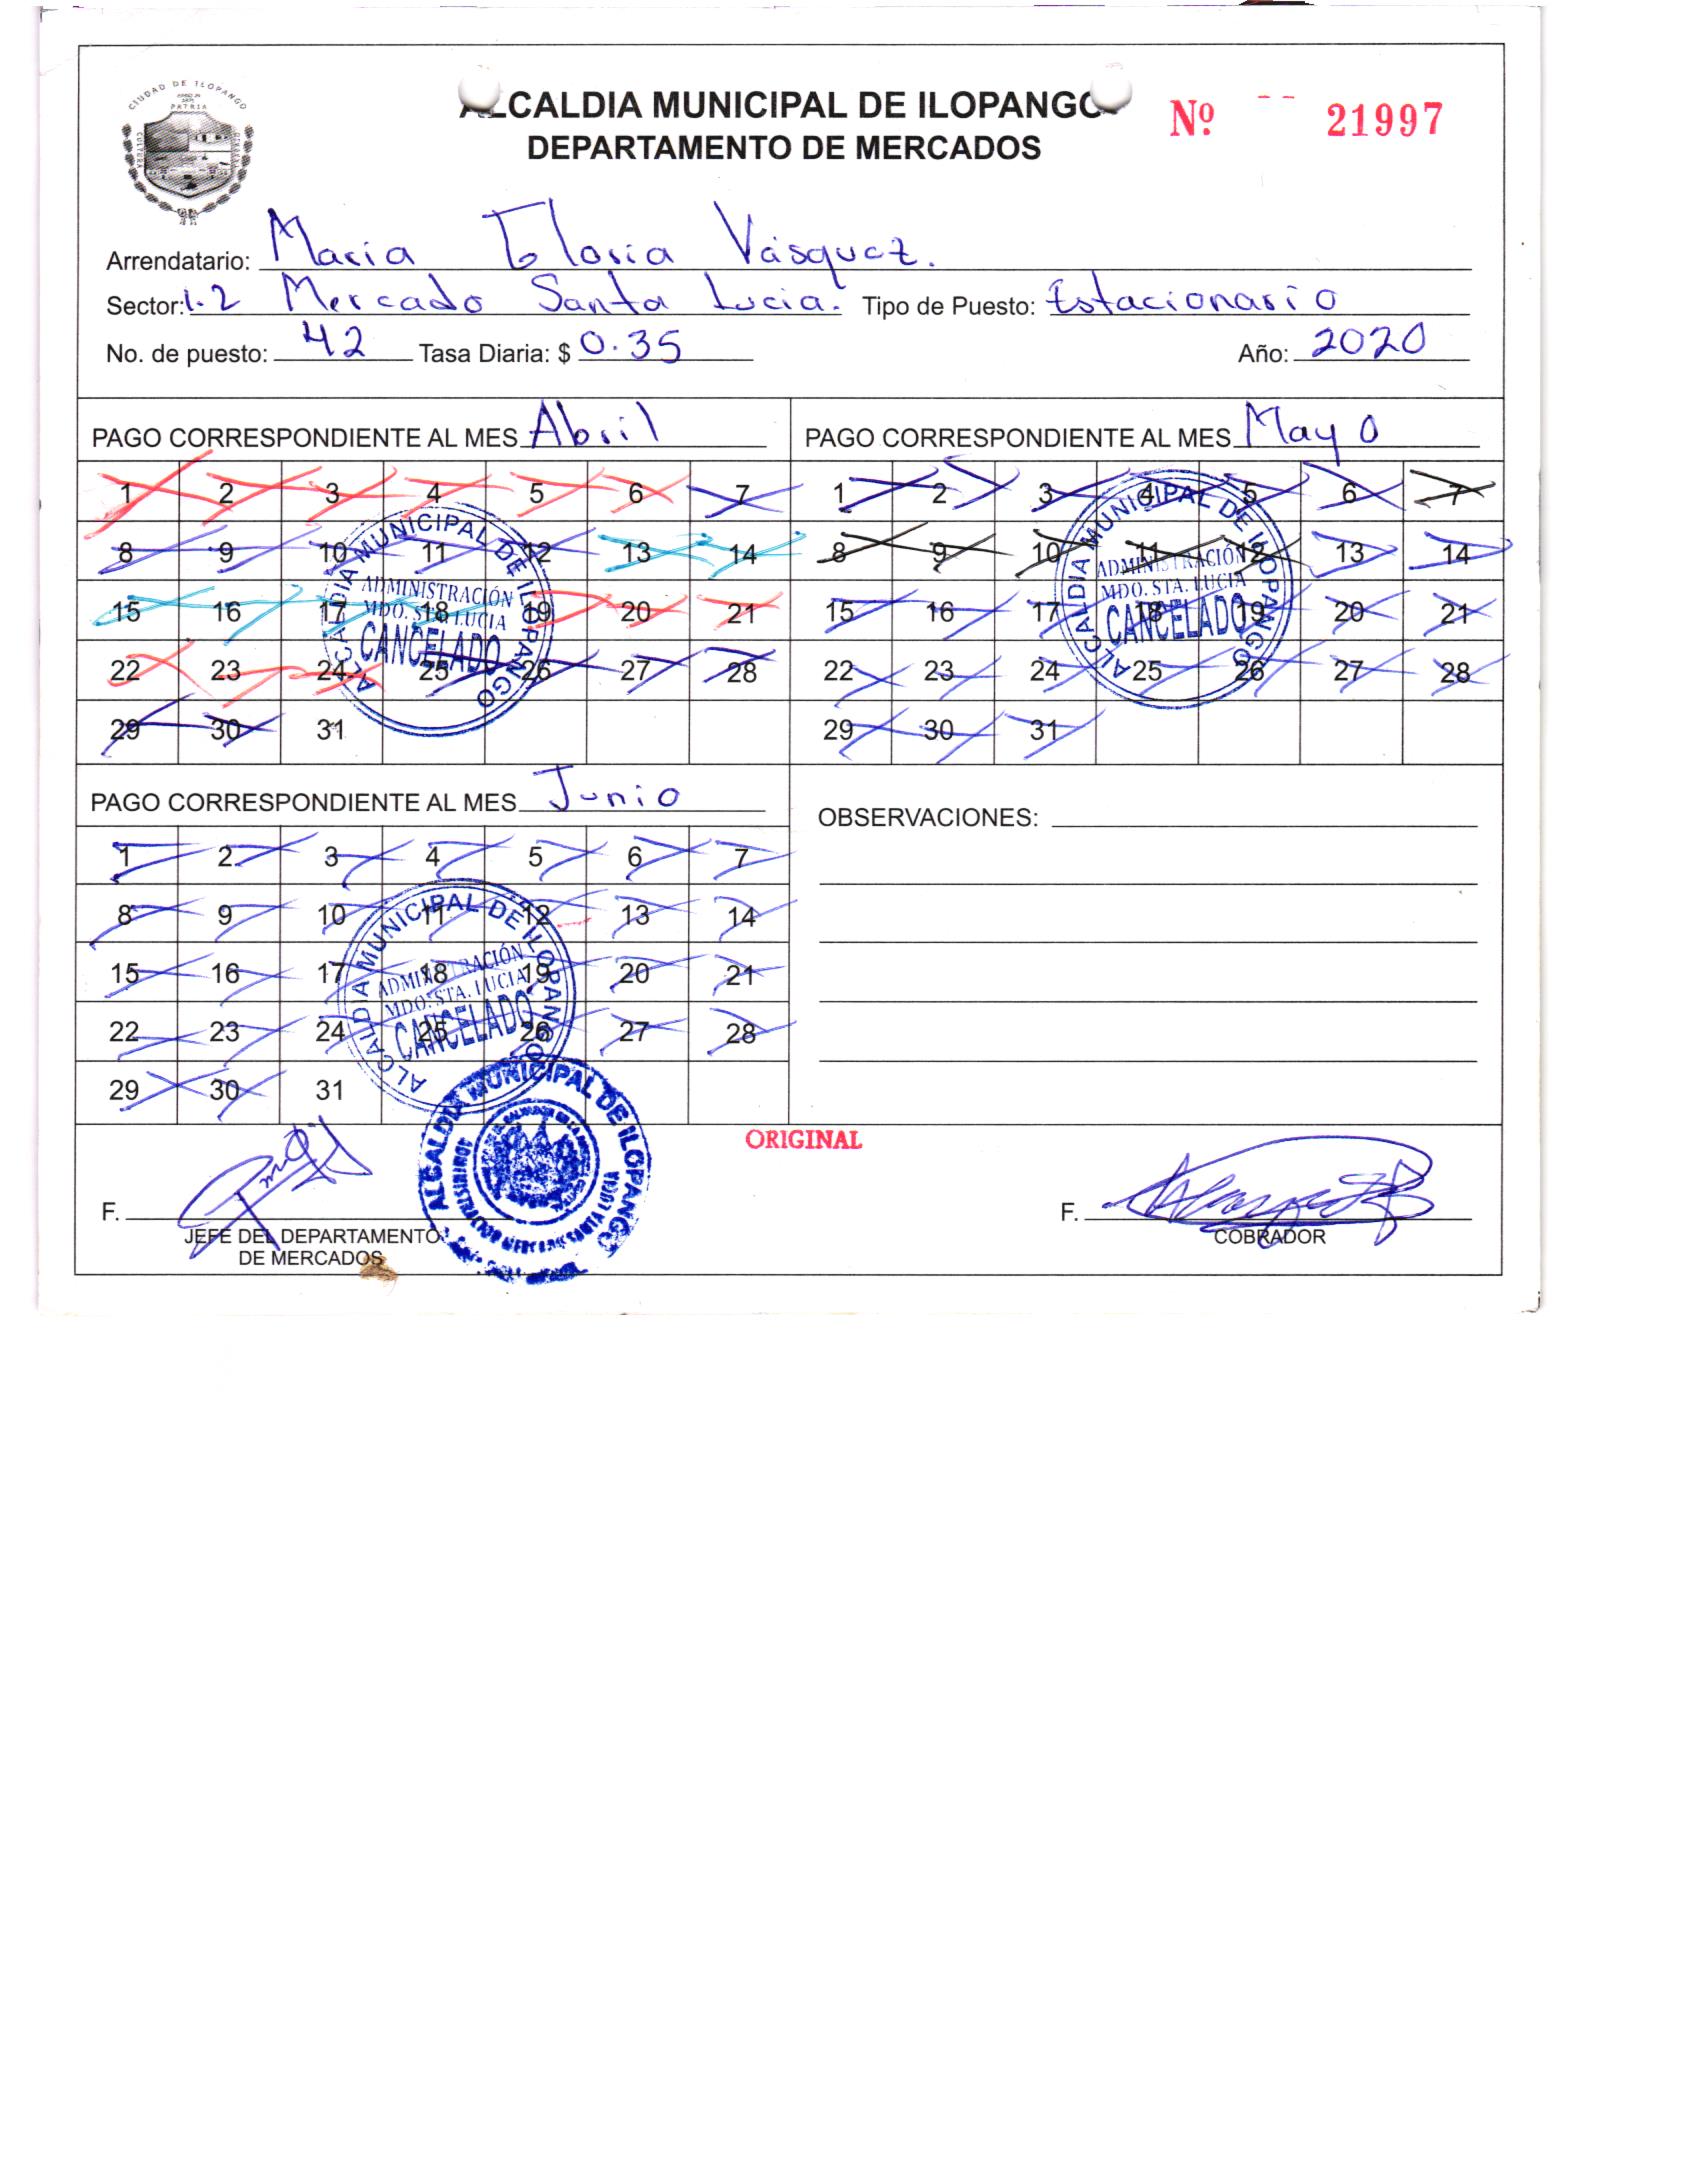 CIUDAD DE ILOPANGO
PATRIA
CULTURA
ALCALDIA MUNICIPAL DE ILOPANGO
DEPARTAMENTO DE MERCADOS
Nº 21997
Arrendatario: Maria Gloria Vásquez.
Sector: 1.2 Mercado Santa Lucia. Tipo de Puesto: Estacionario
No. de puesto: 42 Tasa Diaria: $ 0.35 Año: 2020
PAGO CORRESPONDIENTE AL MES Abril
1 2 3 4 5 6 7
8 9 10 11 12 13 14
15 16 17 18 19 20 21
22 23 24 25 26 27 28
29 30 31
ALCALDIA MUNICIPAL DE ILOPANGO
ADMINISTRACIÓN
MDO. STA. LUCIA
CANCELADO
PAGO CORRESPONDIENTE AL MES Mayo
1 2 3 4 5 6 7
8 9 10 11 12 13 14
15 16 17 18 19 20 21
22 23 24 25 26 27 28
29 30 31
ALCALDIA MUNICIPAL DE ILOPANGO
ADMINISTRACIÓN
MDO. STA. LUCIA
CANCELADO
PAGO CORRESPONDIENTE AL MES Junio
1 2 3 4 5 6 7
8 9 10 11 12 13 14
15 16 17 18 19 20 21
22 23 24 25 26 27 28
29 30 31
ALCALDIA MUNICIPAL DE ILOPANGO
ADMINISTRACIÓN
MDO. STA. LUCIA
CANCELADO
OBSERVACIONES:
ALCALDIA MUNICIPAL DE ILOPANGO
SANTA LUCIA
ORIGINAL
F.
JEFE DEL DEPARTAMENTO
DE MERCADOS
F.
COBRADOR